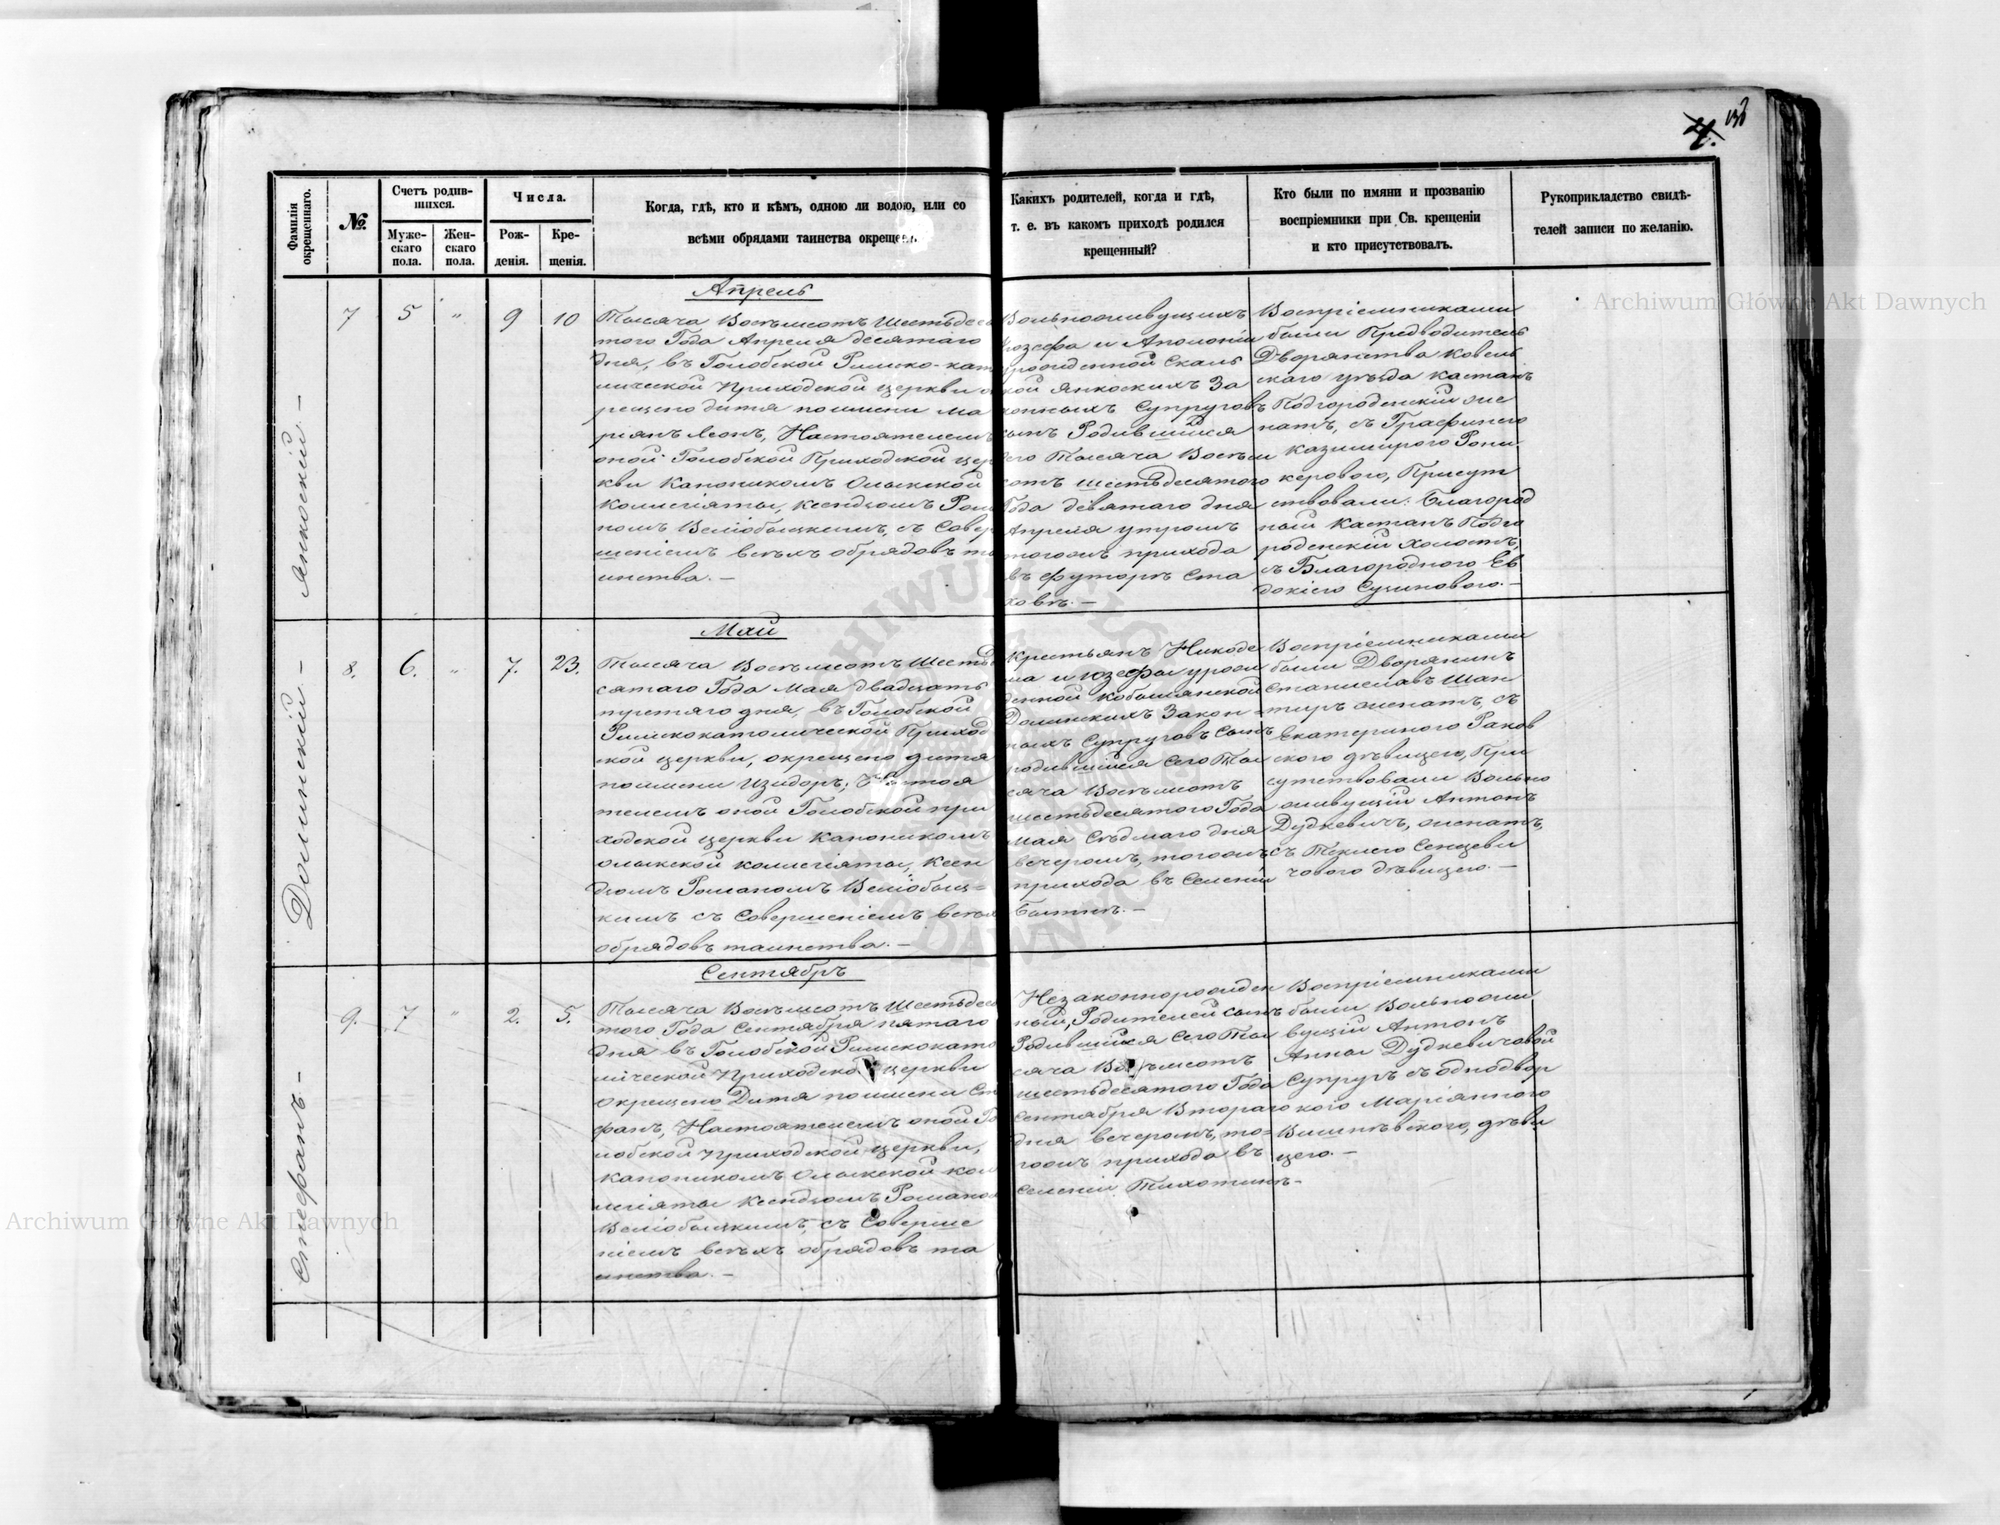 4. 138
Фамилія окрещеннаго.
№
Счетъ родившихся.
Мужескаго пола.
Женскаго пола.
Числа.
Рожденія.
Крещенія.
Когда, гдѣ, кто и кѣмъ, одною ли водою, или со
всѣми обрядами таинства окрещенъ.
Какихъ родителей, когда и гдѣ,
т. е. въ какомъ приходѣ родился
крещенный?
Кто были по имяни и прозванію
воспріемники при Св. крещеніи
и кто присутствовалъ.
Рукоприкладство свидѣ-
телей записи по желанію.
Янкоскій. –
7 5 " 9 10
Апрель
Тысяча Восемьсотъ Шестьдеся
того Года Апреля десятаго
дня, въ Голобской Римско-кат
лической Приходской церкви ок
рещено дитя по имени Ма
ріянъ Леонъ, Настоятелемъ
оной Голобской Приходской цер
кви Каноникомъ Олыкской
Коллегіяты, Ксендзомъ Рома
номъ Веліобыцкимъ, съ Совер
шеніемъ всехъ обрядовъ та
инства. –
Вольноживущихъ
Іозефа и Аполоніи
урожденной Скаль
кой Янкоскихъ За
конныхъ Супруговъ
сынъ Родившійся
сего Тысяча Восемь
сотъ шестьдесятого
Года девятаго дня
Апреля утромъ
тогожъ прихода
въ футорѣ Ста
ховѣ. –
Воспріемниками
были Предводитель
Дворянства Ковель
скаго уѣзда Каэтанъ
Подгороденскій же
натъ, съ Графинею
Казимирою Рони
керовою, Присут
ствовали: Благород
ный Каэтанъ Подго
роденскій холостъ,
съ Благородною Ев
докіею Сушиновою. –
Долинскій –
8. 6. " 7. 23.
Май
Тысяча Восемьсотъ Шестьде
сятаго Года Мая двадцать
третяго дня, въ Голобской
Римскокатолической Приход
ской церкви, окрещено дитя
по имени Изидоръ; Настоя
телемъ оной Голобской при
ходской церкви Каноникомъ
олыкской коллегіяты, Ксен
дзомъ Романомъ Веліобыц-
кимъ съ Совершеніемъ всехъ
обрядовъ таинства. –
Крестьянъ Никоде
ма и Іозефы урож
денной Кобылянской
Долинскихъ Закон
ныхъ Супруговъ Сынъ
родившійся Сего Ты
сяча Восемьсотъ
шестьдесятого Года
Мая Седмаго дня
вечеромъ, тогожъ
прихода въ Селеніи
Воспріемниками
были Дворянинъ
Станиславъ Шан
тыръ женатъ, съ
Екатериною Раков
скою дѣвицею, При
сутствовали Вольно
живущій Антонъ
Дудкевичъ, женатъ,
съ Теклею Сенцеви
човою дѣвицею. –
Стефанъ –
9. 7 " 2. 5.
Сентябрь
Тысяча Восемьсотъ Шестьдеся
того Года Сентября пятаго
дня въ Голобской Римскокато
лической Приходской церкви
окрещено Дитя по имени Сте
фанъ, Настоятелемъ оной Го
лобской Приходской церкви,
Каноникомъ Олыкской кол
легіяты Ксендзомъ Романом
Веліобыцкимъ, съ Соверше
ніемъ всехъ обрядовъ та
инства. –
Незаконнорожден
ный, Родителей сынъ
Родившійся Сего Ты
сяча Восемьсотъ
шестьдесятого Года
Сентября Втораго
дня вечеромъ, то=
гожъ прихода въ
Селеніи Тихотинѣ –
Воспріемниками
были Вольножи
вущій Антонъ
Анны Дудкевичовой
Супругъ съ однодвор
кою Маріянною
Вишнѣвскою, дѣви
цею. –
Archiwum Główne Akt Dawnych
Archiwum Główne Akt Dawnych